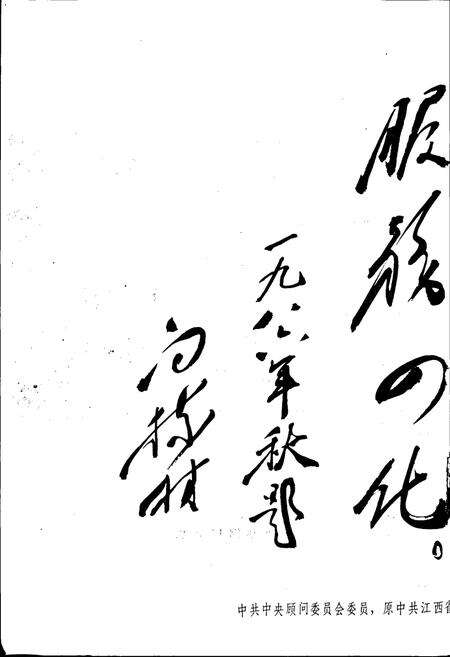 服务四化。
一九八六年秋题
白栋材
中共中央顾问委员会委员，原中共江西省